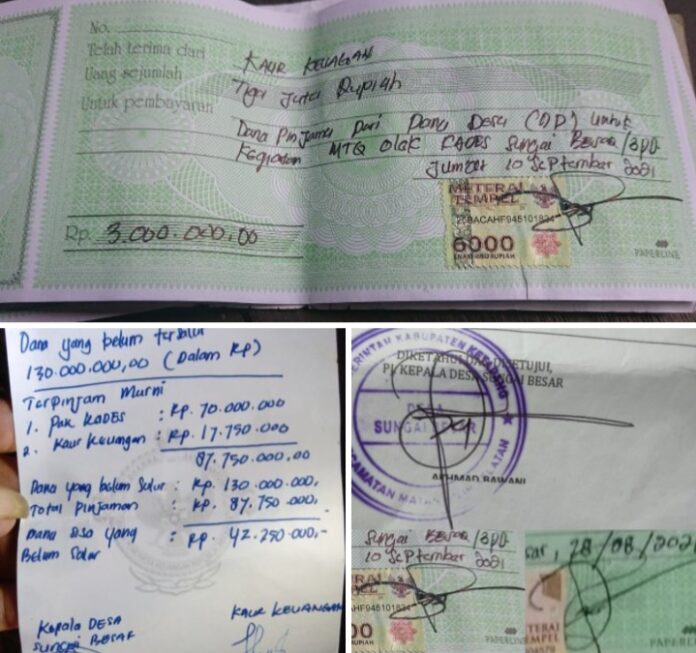 No.
Telah terima dari KAUR KEUAGAN
Uang sejumlah Tiga Juta Rupiah
Untuk pembayaran
Dana Pinjaman Dari Dana Desa (DD) untuk
Kegiatan MTQ OLAK KADES Sungai Besar /BPD
Jumbet 10 September 2021
METERAI
TEMPEL
6000
ENAM RIBU RUPIAH
Rp. 3.000.000,00
PAPERLINE
Dana yang belum tersalur
130.000.000,00 (Dalam Rp)
Terpinjam Murni
1. PAK KADES : Rp. 70.000.000
2. Kaur Keuangan : Rp. 17.750.000
87.750.000,00
Dana yang belum Salur : Rp. 130.000.000,
Total Pinjaman : Rp. 87.750.000,
Dana sisa yang : Rp. 42.250.000,-
Belum Salur
Kepala DESA KAUR KEUANGAN
SUNGAI BESAR
DIKETAHUI DAN DISETUJUI,
PJ KEPALA DESA SUNGAI BESAR
DESA
SUNGAI BESAR
AKHMAD BAWANI
Sungai Besar /BPD
10 September 2021
PAPERLINE
sar, 28/08/202
TERAI
EMPEL
PAPERL